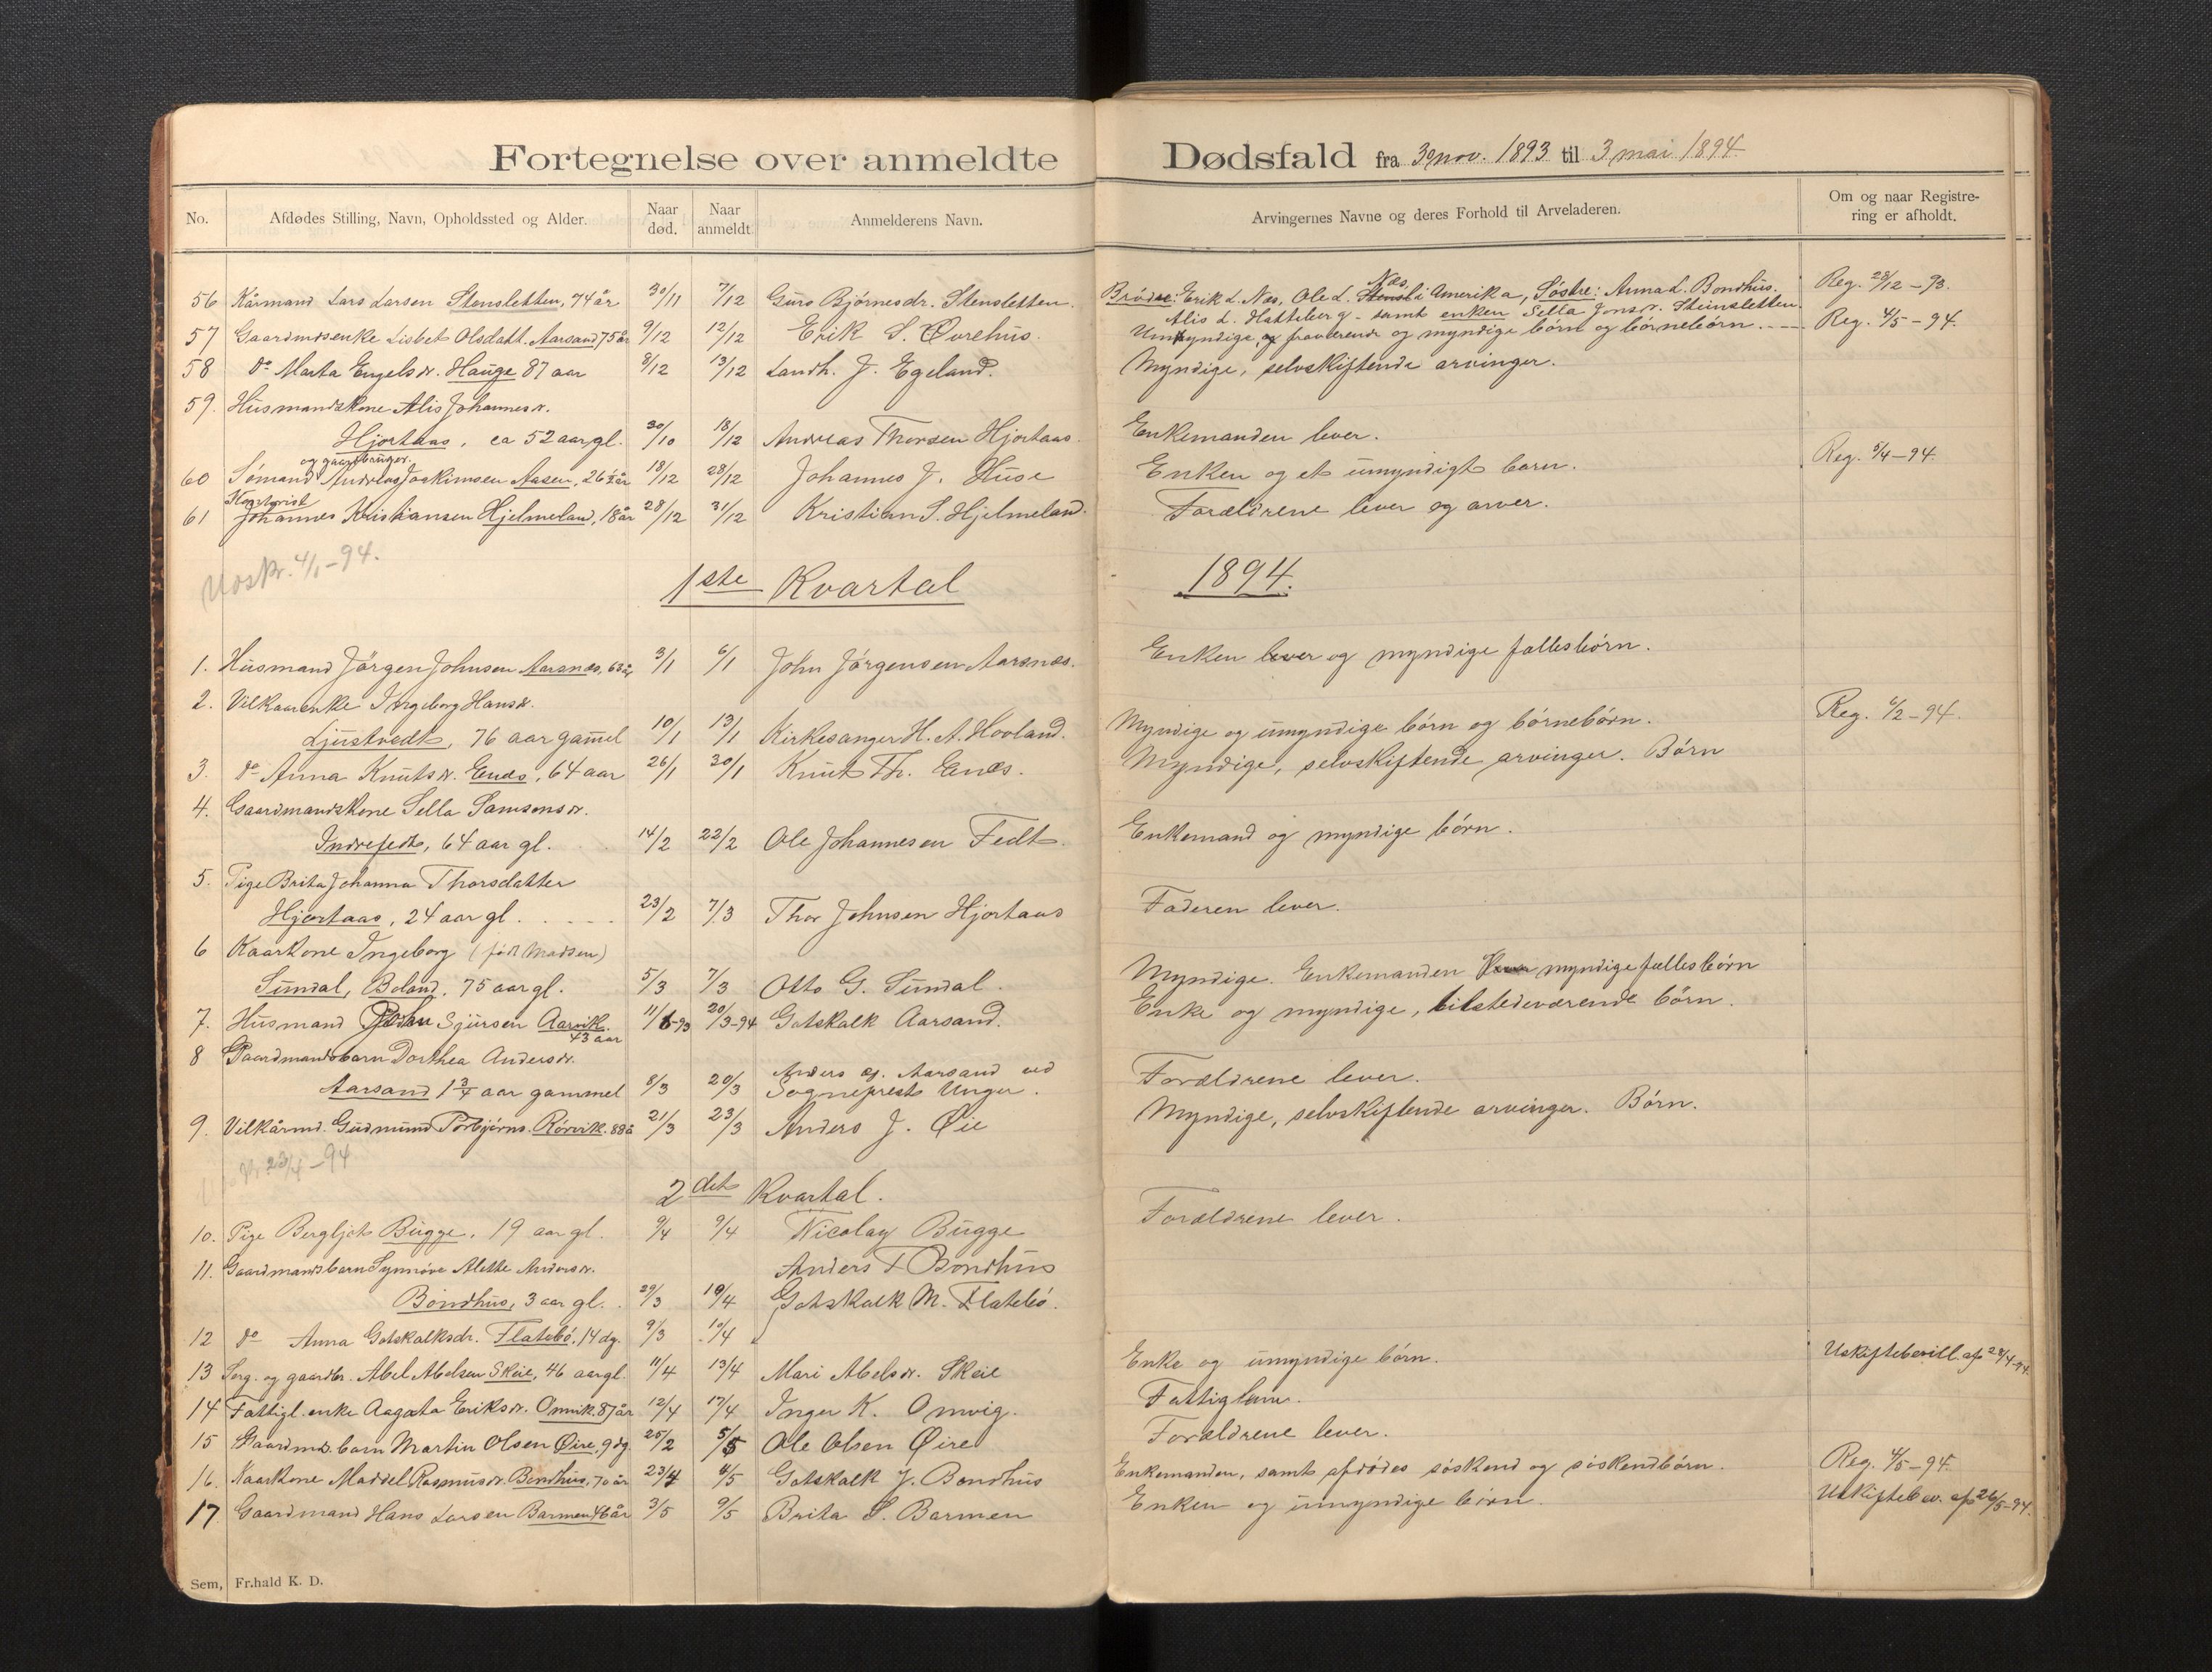 Fortegnelse over anmeldte Dødsfald fra 30 nov. 1893 til 3 mai 1894.
No. Afdødes Stilling, Navn, Opholdssted og Alder. Naar død. Naar anmeldt. Anmelderens Navn. Arvingernes Navne og deres Forhold til Arveladeren. Om og naar Registrering er afholdt.
56 Kårmand Lars Larsen Stensletten, 74 år 30/11 7/12 Guro Bjørnesdr. Stensletten. Brødre: Erik L. Næs, Ole L. Næs, i Amerika, Søstre: Anna L. Bondhus. Reg. 28/12 – 93.
Alis L. Hatteberg – samt enken Sella Jonsdr. Steinsletten.
57 Gaardmdsenke Lisbet Olsdatt. Aarsand 75 år 9/12 12/12 Erik S. Øvrehus. Umyndige, fraværende og myndige børn og børnebørn. Reg. 4/5 – 94.
58 do Marta Engelsdr. Hauge 87 aar 8/12 13/12 Landh. J. Egeland. Myndige, selvskiftende arvinger.
59. Husmandskone Alis Johannesdr.
Hjortaas, ca 52 aar gl. 30/10 18/12 Andreas Thorsen Hjortaas. Enkemanden lever.
og gaardbruger.
60 Sømand Andreas Joakimsen Aasen, 26 1/2 år 18/12 28/12 Johannes J. Huse Enken og et umyndigt barn. Reg. 5/4 – 94.
61 Johannes Kristiansen Hjelmeland, 18 år 28/12 31/12 Kristian S. Hjelmeland. Forældrene lever og arver.
Uoskr. 4/1 – 94.
1ste Kvartal 1894.
1. Husmand Jørgen Johnsen Aarsnæs, 63 år 3/1 6/1 John Jørgensen Aarsnæs. Enken lever og myndige fællesbørn.
2. Vilkaarenke Ingeborg Hansdr.
Ljustvedt, 76 aar gammel 10/1 13/1 Kirkesanger H. A. Hovland. Myndige og umyndige børn og børnebørn. Reg. 6/2 – 94.
3. do Anna Knutsdr. Enæs, 64 aar 26/1 30/1 Knut Th. Enæs. Myndige, selvskiftende arvinger. Børn
4. Gaardmandskone Sella Samsonsdr.
Indrefedt, 64 aar gl. 14/2 22/2 Ole Johannesen Fedt. Enkemand og myndige børn.
5. Pige Brita Johanna Thorsdatter
Hjortaas, 24 aar gl. 23/2 7/3 Thor Johnsen Hjortaas Faderen lever.
6 Kaarkone Ingeborg (født Madsen)
Sundal, Boland. 75 aar gl. 5/3 7/3 Otto G. Sundal. Myndige. Enkemanden myndige fællesbørn
7. Husmand John Sjursen Aarvik. 43 aar 11/6-93 20/3-94 Gotskalk Aarsand. Enke og myndige, tilstedeværende børn.
8 Gaardmandsbarn Dorthea Andersdr.
Aarsand 1 3/4 aar gammel 8/3 20/3 Anders og. Aarsand ved Sogneprest Unger. Forældrene lever.
9. Vilkårmd. Gudmund Torbjørns. Rørvik. 88 å 21/3 23/3 Anders J. Øie Myndige, selvskiftende arvinger. Børn.
23/4 – 94
2det Kvartal.
10. Pige Bergljot Bugge, 19 aar gl. 9/4 9/4 Nicolay Bugge Forældrene lever.
11. Gaardmandsbarn Synnøve Alette Andersdr. Anders T Bondhus
Bondhus, 3 aar gl. 29/3 10/4 Gotskalk M. Flatebø.
12 do Anna Gotskalksdr. Flatebø, 14 dg. 9/3 10/4
13 Serg. og gaardbr. Abel Abelsen Skeie, 46 aar gl. 11/4 13/4 Mari Abelsdr. Skeie Enke og umyndige børn. Uskiftebevill. af 28/4-94.
14 Fattigl. enke Aagata Eriksdr. Omvik. 87 år 12/4 17/4 Inger K. Omvig. Fattiglem.
15 Gaardmds. barn Martin Olsen Øire, 9 dg. 25/2 5/5 Ole Olsen Øire Forældrene lever.
16. Kaarkone Maddel Rasmusdr. Bondhus, 70 år 23/4 4/5 Gotskalk J. Bondhus Enkemanden, samt afdødes søskend og søskendbørn. Reg. 4/5 – 94.
17 Gaardmand Hans Larsen Barmen 46 år 3/5 9/5 Brita S. Barmen Enken og umyndige børn. Uskiftebev. af 26/5-94.
Sem, Fr.hald K. D.